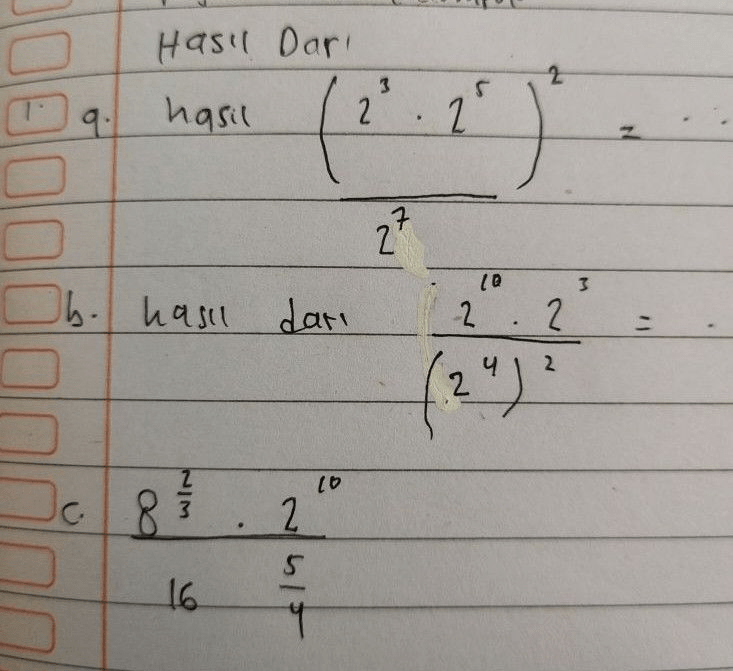 Hasil Dari
1. a. hasil (2³ . 2⁵)² = ...
2⁷
b. hasil dari 2¹⁰ . 2³ = .
(2⁴)²
c. 8^(2/3) . 2¹⁰
16 5/4